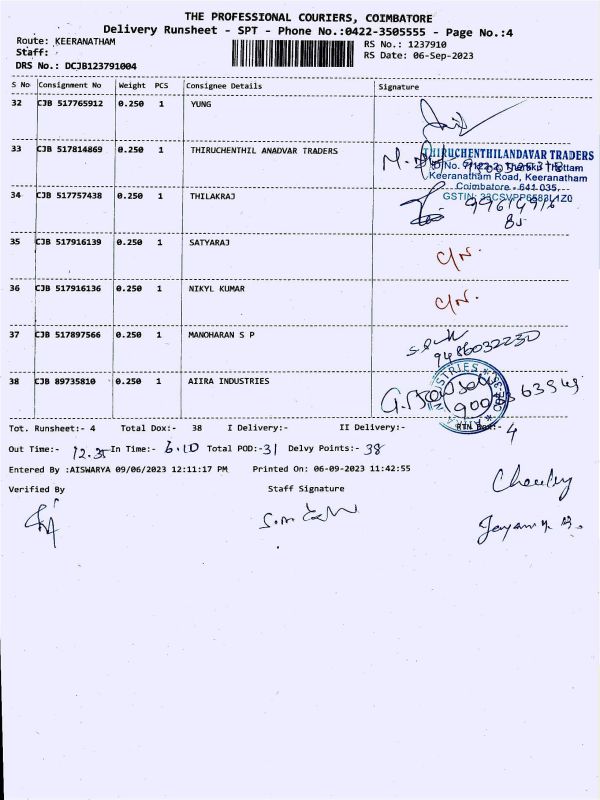 THE PROFESSIONAL COURIERS, COIMBATORE
Delivery Runsheet - SPT - Phone No.:0422-3505555 - Page No.:4
Route: KEERANATHAM
RS No.: 1237910
Staff:
RS Date: 06-Sep-2023
DRS No.: DCJB123791004
S No Consignment No Weight PCS Consignee Details Signature
32 CJB 517765912 0.250 1 YUNG
33 CJB 517814869 0.250 1 THIRUCHENTHIL ANADVAR TRADERS
THIRUCHENTHILANDAVAR TRADERS
Keeranatham Road, Keeranatham
Coimbatore - 641 035.
34 CJB 517757438 0.250 1 THILAKRAJ
35 CJB 517916139 0.250 1 SATYARAJ C/N.
36 CJB 517916136 0.250 1 NIKYL KUMAR C/N.
37 CJB 517897566 0.250 1 MANOHARAN S P
9486032230
38 CJB 89735810 0.250 1 AIIRA INDUSTRIES
Tot. Runsheet:- 4 Total Dox:- 38 I Delivery:- II Delivery:- 4
Out Time:- 12.35 In Time:- 6.10 Total POD:- 31 Delvy Points:- 38
Entered By :AISWARYA 09/06/2023 12:11:17 PM Printed On: 06-09-2023 11:42:55
Verified By Staff Signature